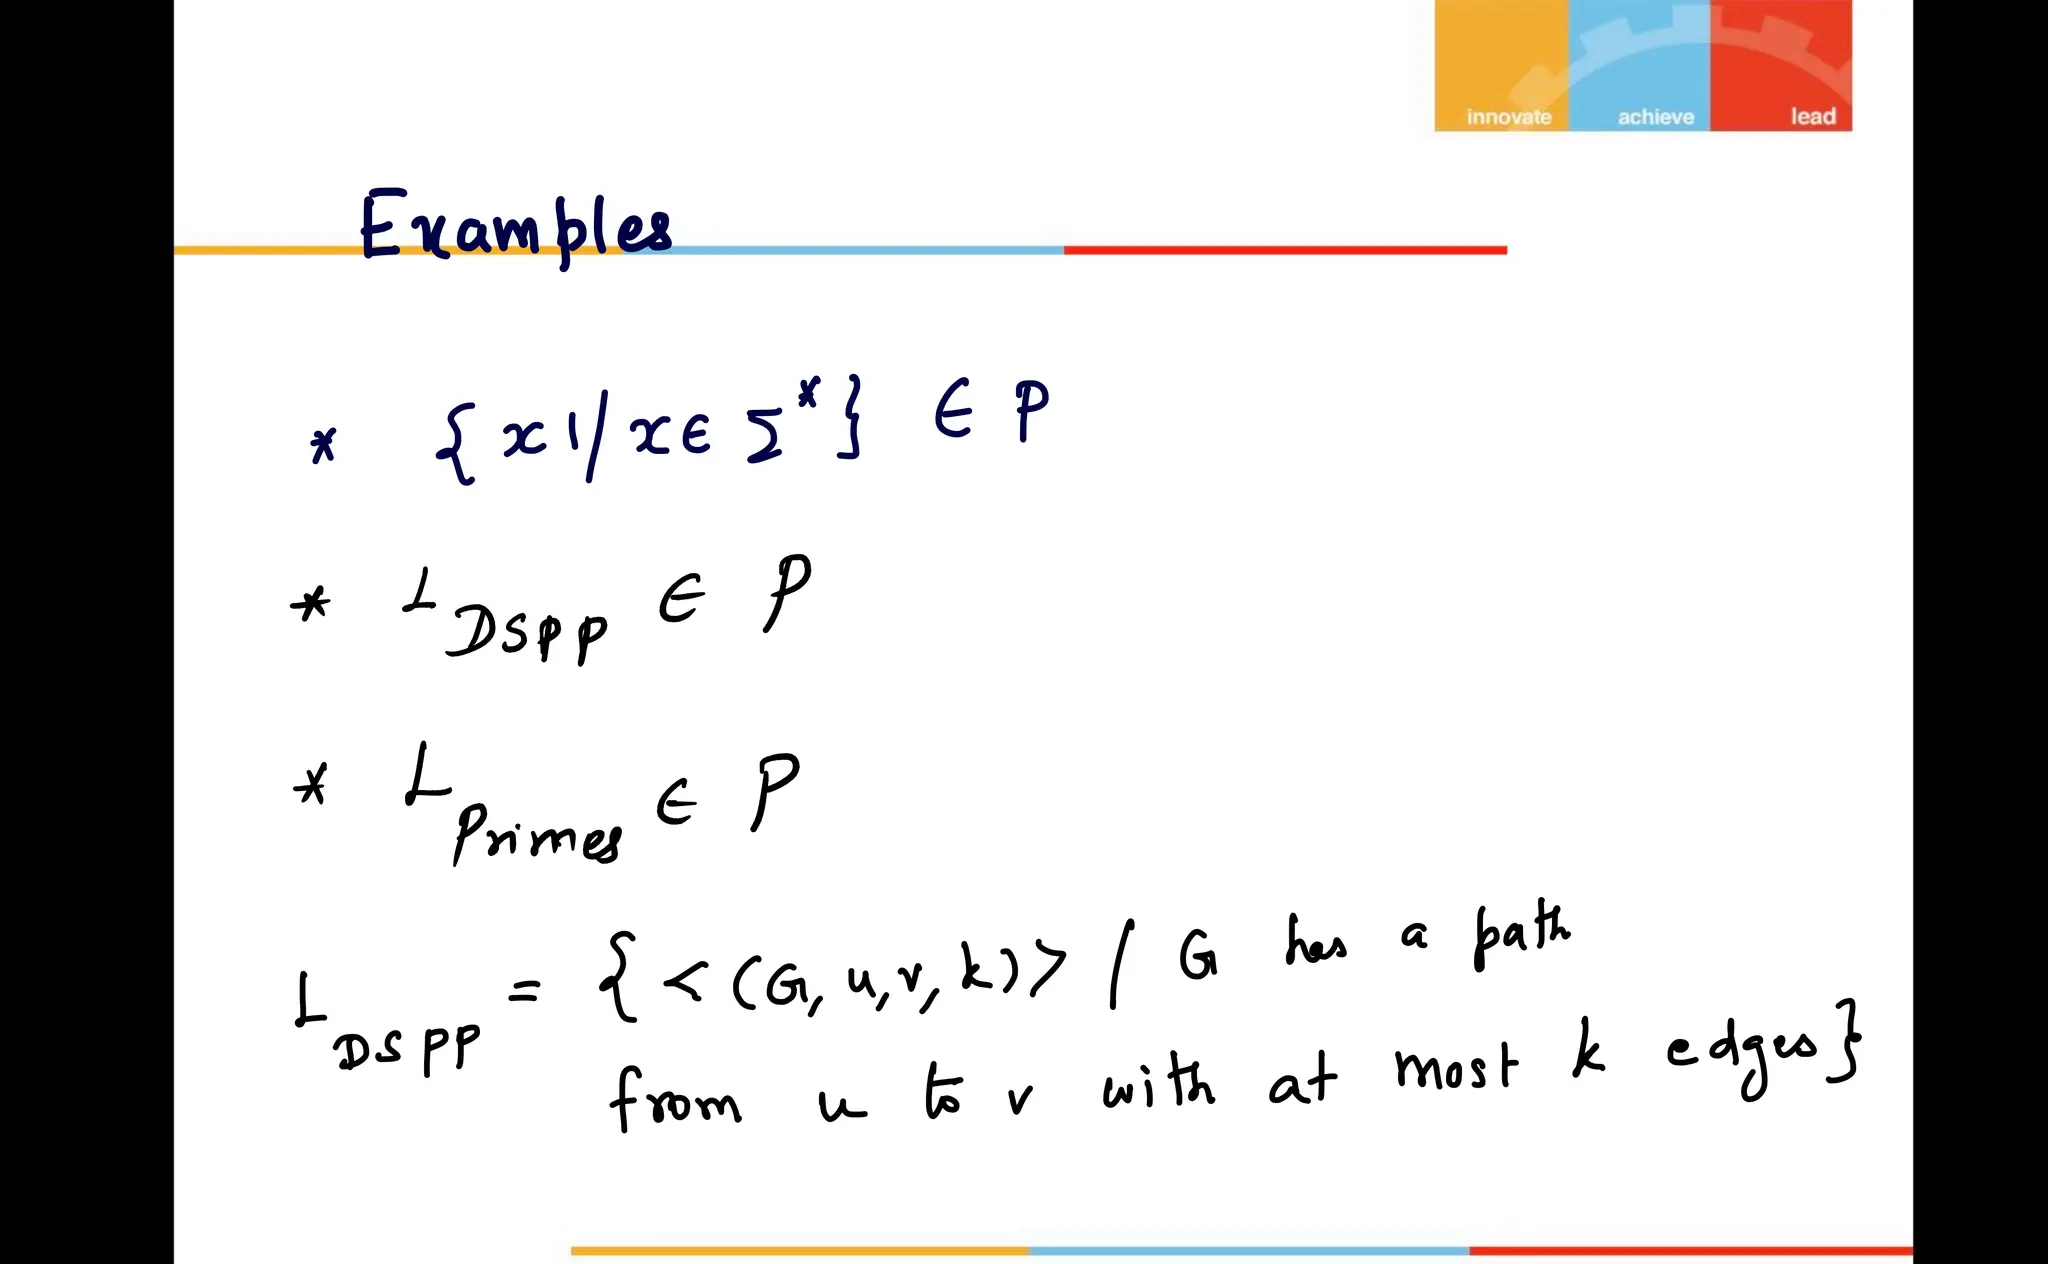 innovate achieve lead
Examples
* {x1/x∈Σ*} ∈ P
* L_DSPP ∈ P
* L_Primes ∈ P
L_DSPP = {<(G,u,v,k)> / G has a path
from u to v with at most k edges}